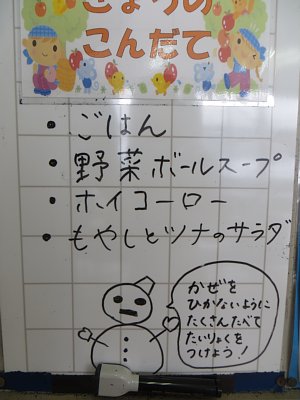 きょうの
こんだて
・ごはん
・野菜ボールスープ
・ホイコーロー
・もやしとツナのサラダ
かぜを
ひかないように
たくさんたべて
たいりょくを
つけよう!